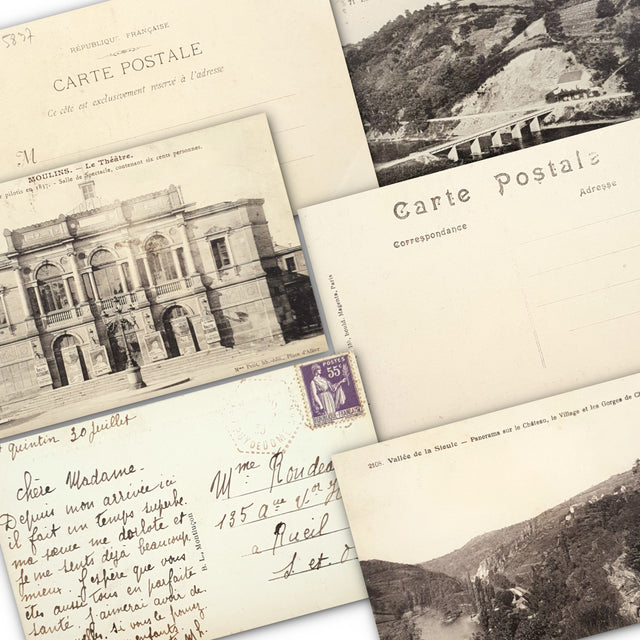 5837
RÉPUBLIQUE FRANÇAISE
CARTE POSTALE
Ce côté est exclusivement reservé à l'adresse
M
MOULINS. — Le Théâtre.
pilotis en 1837. - Salle de Spectacle, contenant six cents personnes.
Place d'Allier
Carte Postale
Correspondance
Adresse
Paris
POSTES
55c
quintin 30 juillet
chère Madame.
Depuis mon arrivée ici
il fait un temps superbe.
ma sœur me dorlote et
je me sens déjà beaucoup
mieux. J'espère que vous
êtes aussi tous en parfaite
santé. J'aimerai avoir de
si vous le
enfants
Mme
135
a Rueil
S et O
2108. Vallée de la Sioule — Panorama sur le Château, le Village et les Gorges de